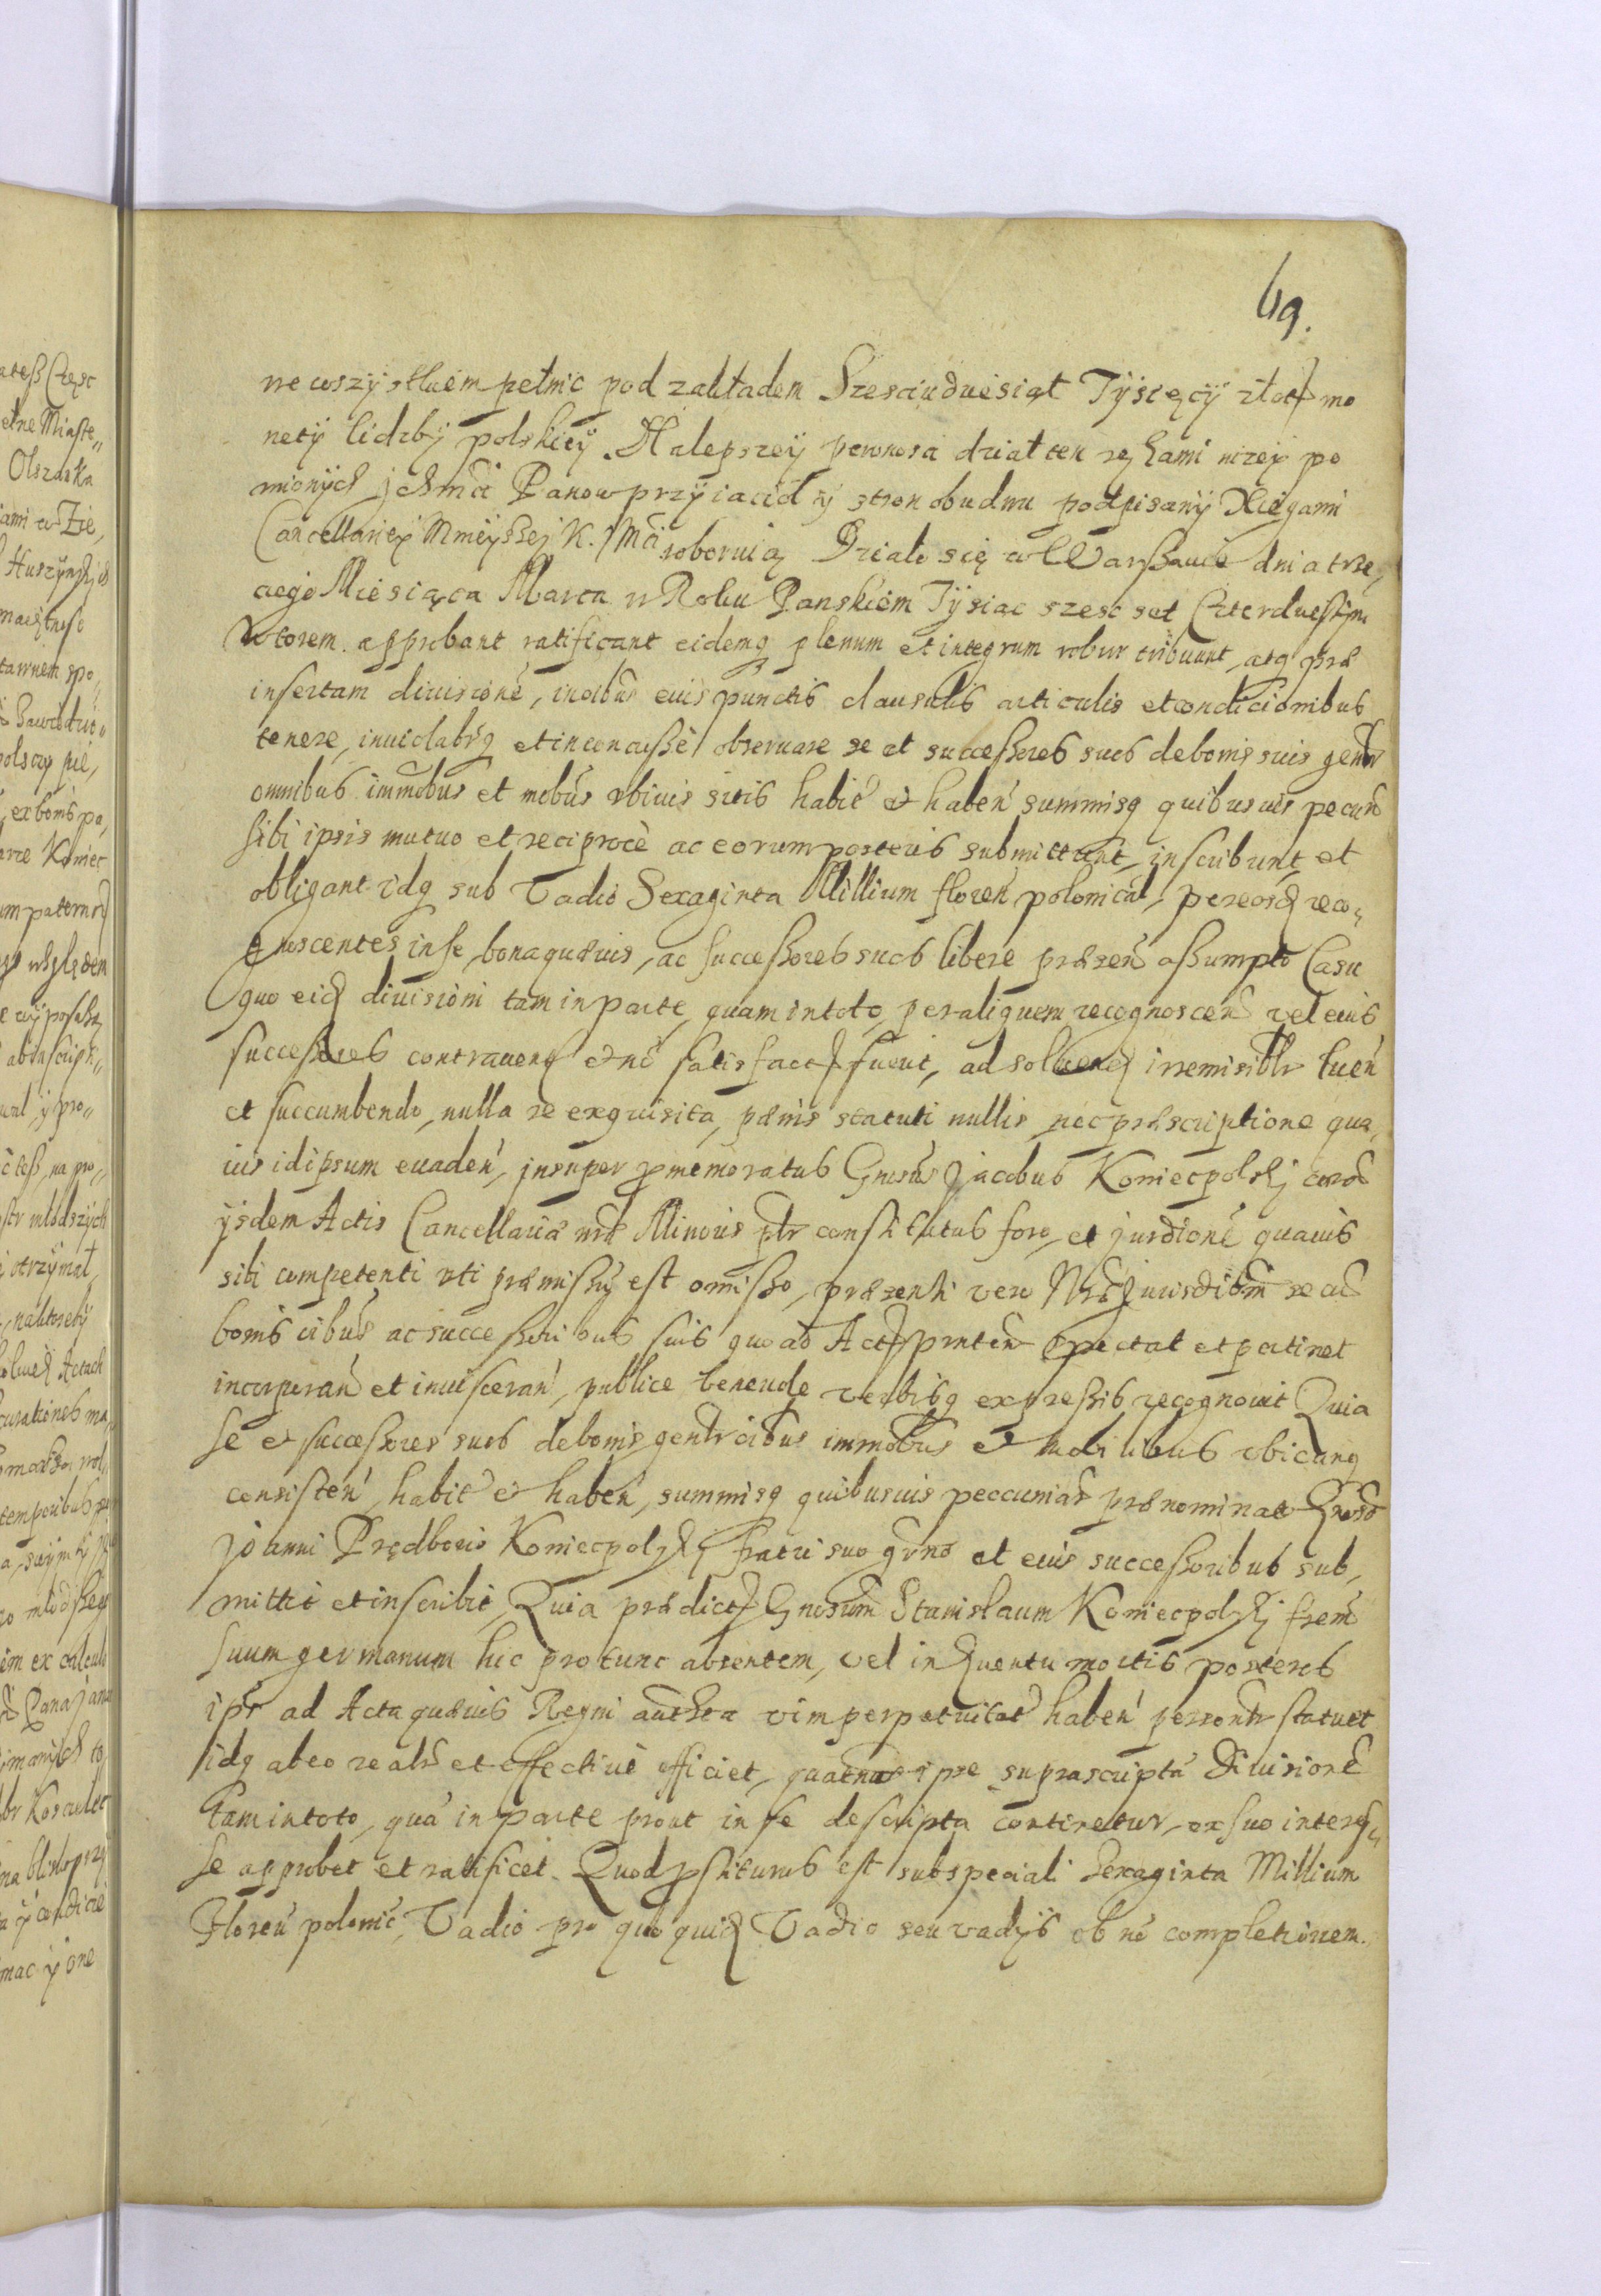 69.
we wszystkiem pełnic pod zakładem Szesciudziesiąt Tysięcy złotҏ mo
nety lidzby polskiey. Na lepszey pewnosci dział ten rękami nizey po
mionych jchmći Panow przyiaciół y stron obudwu podpisany Xięgami
Cancellariey Mnieyszej K. JMći roboruią Działo się w Warszawie dnia trze,
ciego Miesiąca Marca w Roku Panskiem Tysiac szesc set Czterdziestym
Wtorem. approbant ratificant eidemq plenum et integrum robur tribuunt, atq præ
insertam divisionē, in oibus euis punctis clausulis articulis et condicionibus
tenere, inviolabrq et inconcusse observare se et successores suos de bonis suis genlr
omnibus immobus et mobus vbivis sitis habit et haben summisq quibusvis pecun
sibi ipsis mutuo et reciprocè ac eorum posteris submittunt, inscribunt, et
obligant idq sub Vadio Sexaginta Millium floren polonical, per eosd reco,,
gnoscentes in se, bona quævis, ac successores suos libere præsen assumpto Casu
quo eid divisioni tam in parte, quam in toto, per aliquem recognoscen vel eius
successores contraven et nō satisfact fuerit, ad solvend irremisiblr luen
et succumbendo, nulla re exquisita, pænis statuti nullis nec præscriptione qua,
vis idipsum evaden, insuper pmemoratus Gnosus Jacobus Koniecpolskj corā
ysdem Actis Cancellariæ nræ Minoris pltr constitutus foro, et jurdtionē quavis
sibi competenti uti præmissū est omisso, præsenti vero Nræ Jurisdictōni se ac
bonis oibus ac successoribus suis quo ad Act pnten spectat et pertinet
incorporan et inviscerań, publice benevole verbisq expressis recognovit Quia
se et successores suos de bonis genlr oibus immobus et mobilibus vbicunq
consisten, habit et haben, summisq quibusvis peccuniar prænominat Gnoso
Joanni Prędborio Koniecpolskj fratri suo grno et eius successoribus sub,
mittit et inscribit, Quia prædict Gnosum Stanislaum Koniecpolskj frem
suum germanum hic pro tunc absentem, vel in eventu mortis posteros
ipsr ad Acta quævis Regni authca vim perpetuitat haben personlr statuet
idq ab eo realr et effective efficiet, quatnus ipse suprascriptā divisionē
tam in toto, quā in parte prout in se descripta continetur, ex suo interes,,
se approbet et ratificet. Quod pstiturus est sub speciali Sexaginta Millium
Floren polonic, Vadio pro quo quid Vadio seu vadys ob nō completionem.